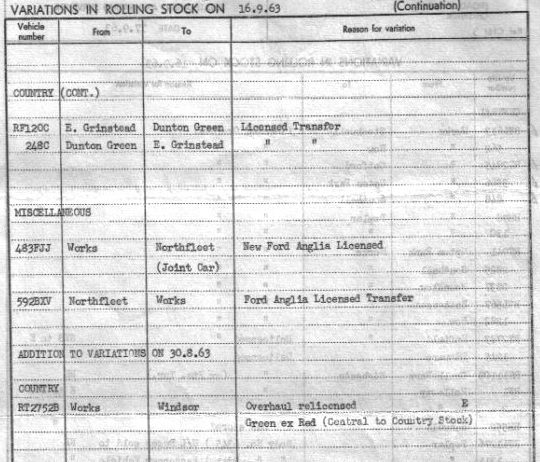 VARIATIONS IN ROLLING STOCK ON 16.9.63 (Continuation)
Vehicle number From To Reason for variation
COUNTRY (CONT.)
RF120C E. Grinstead Dunton Green Licensed Transfer
248C Dunton Green E. Grinstead " "
MISCELLANEOUS
483FJJ Works Northfleet New Ford Anglia Licensed
(Joint Car)
592BXV Northfleet Works Ford Anglia Licensed Transfer
ADDITION TO VARIATIONS ON 30.8.63
COUNTRY
RT2752B Works Windsor Overhaul relicensed E
Green ex Red (Central to Country Stock)